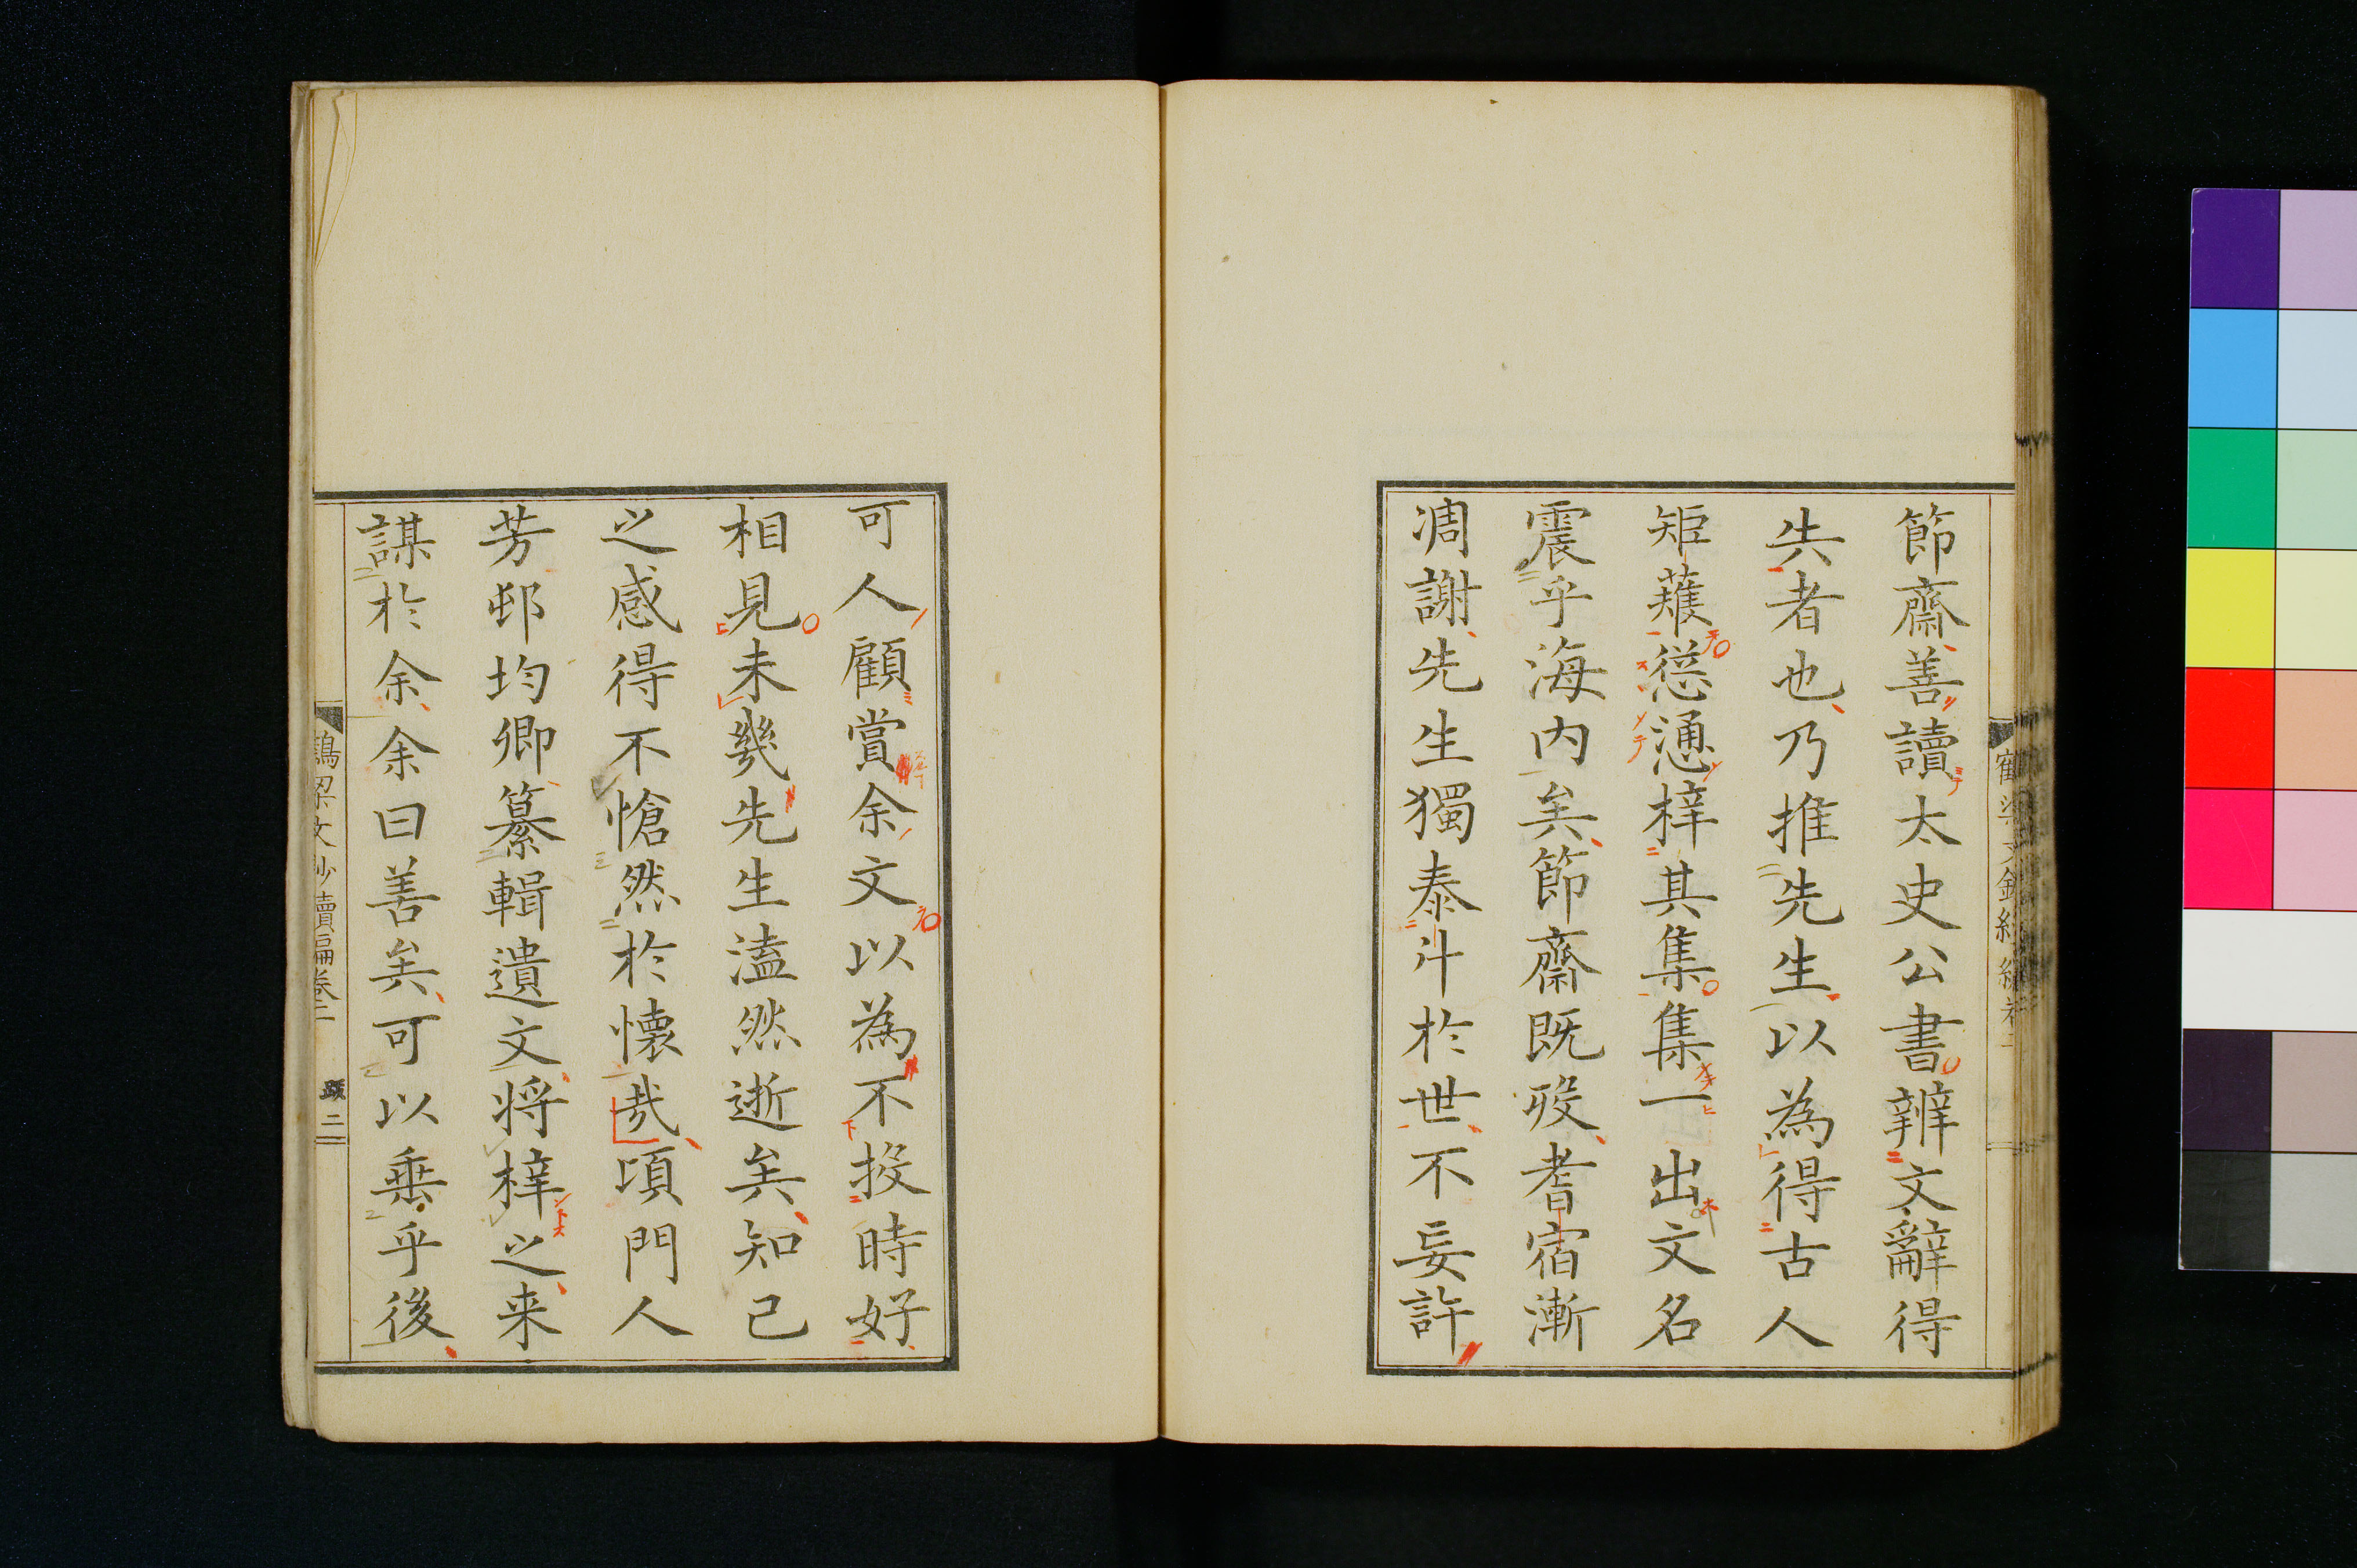 節齋善讀太史公書辨文辭得
失者也乃推先生以為得古人
矩蒦慫慂梓其集集一出文名
震乎海内矣節齋既歿耆宿漸
凋謝先生獨泰斗於世不妄許
可人顧賞余文以為不投時好
相見未幾先生溘然逝矣知己
之感得不愴然於懷哉頃門人
芳邨均卿纂輯遺文将梓之来
謀於余余曰善矣可以垂乎後
鶴梁文鈔續編卷二
跋二